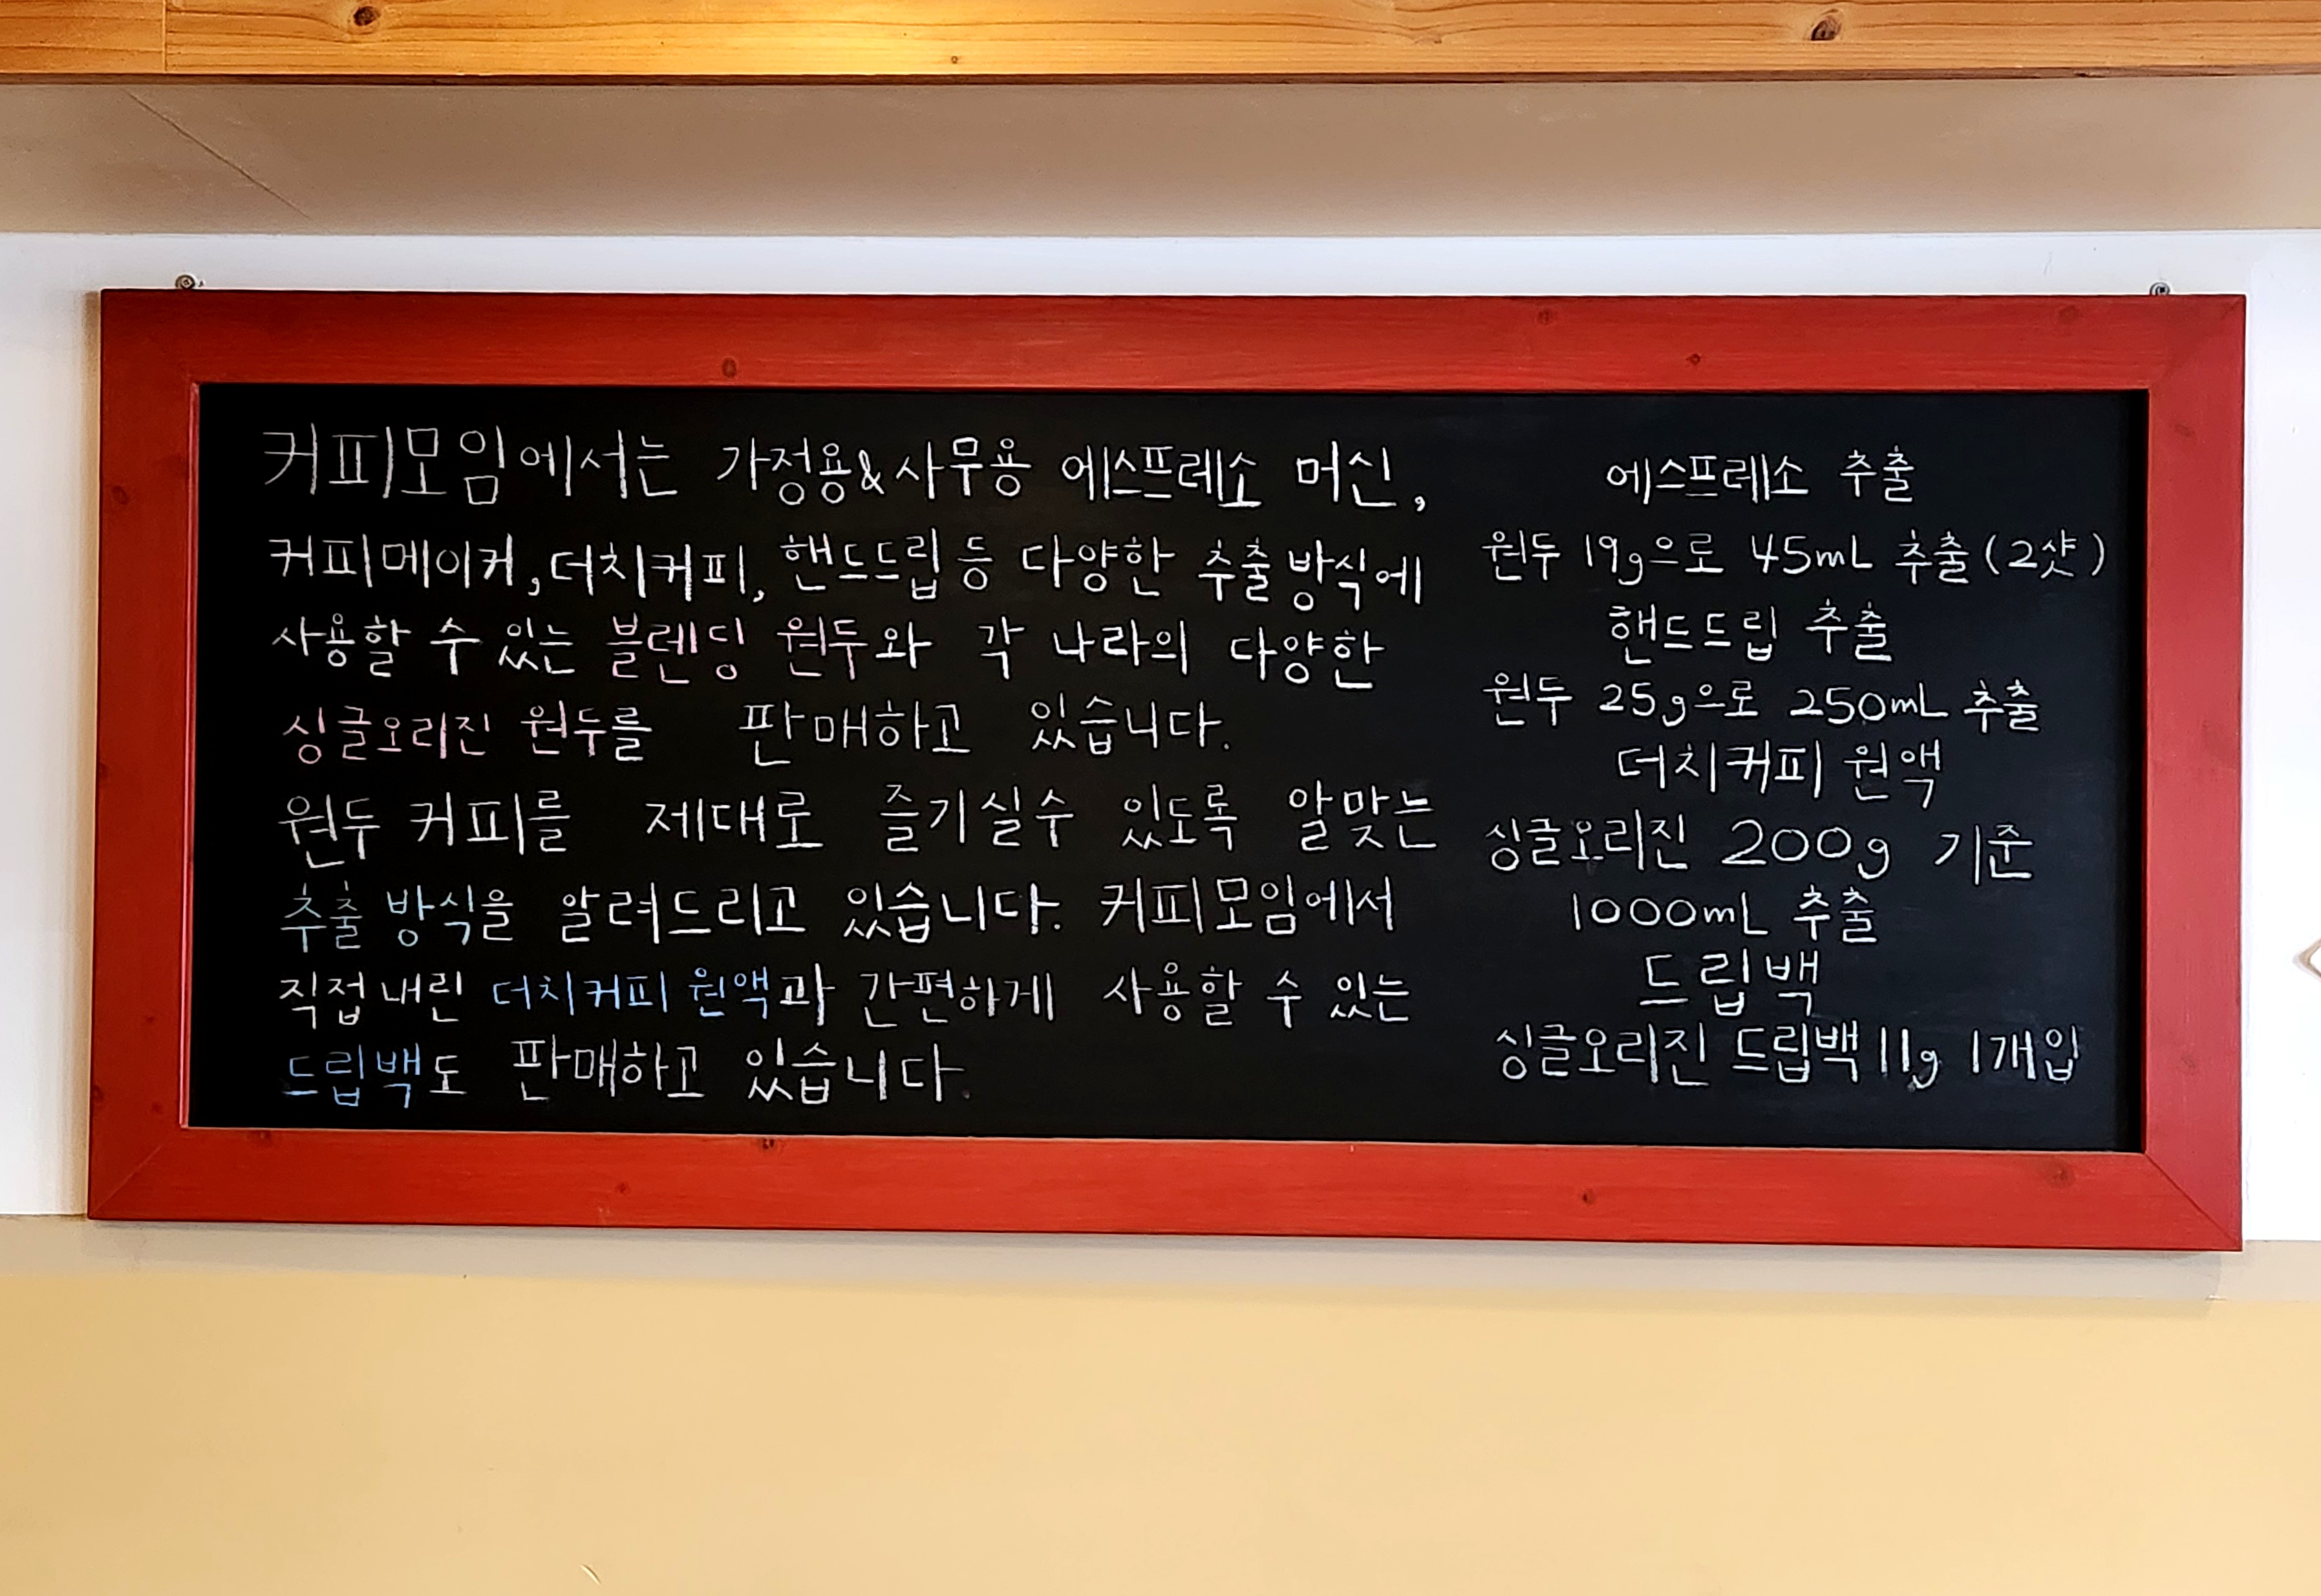 커피모임에서는 가정용&사무용 에스프레소 머신,
커피메이커, 더치커피, 핸드드립 등 다양한 추출 방식에
사용할 수 있는 블렌딩 원두와 각 나라의 다양한
싱글오리진 원두를 판매하고 있습니다.
원두 커피를 제대로 즐기실수 있도록 알맞는
추출 방식을 알려드리고 있습니다. 커피모임에서
직접 내린 더치커피 원액과 간편하게 사용할 수 있는
드립백도 판매하고 있습니다.
에스프레소 추출
원두 19g으로 45mL 추출 (2샷)
핸드드립 추출
원두 25g으로 250mL 추출
더치커피 원액
싱글오리진 200g 기준
1000mL 추출
드립백
싱글오리진 드립백 11g 1개입